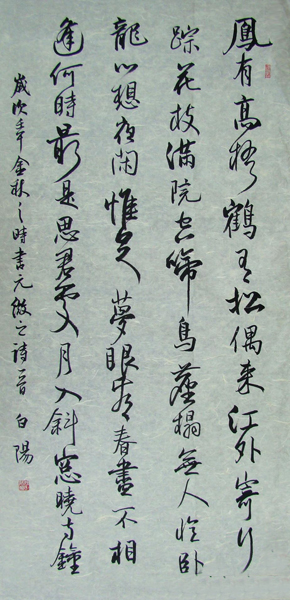 鳳有高梧鶴有松偶来江外寄行
踪花枝滿院空啼鳥塵榻無人憶卧
龍心想夜閑惟足夢眼看春盡不相
逢何時最是思君處月入斜窓曉寺鐘
歲次金秋之時書元微之詩一首 白陽